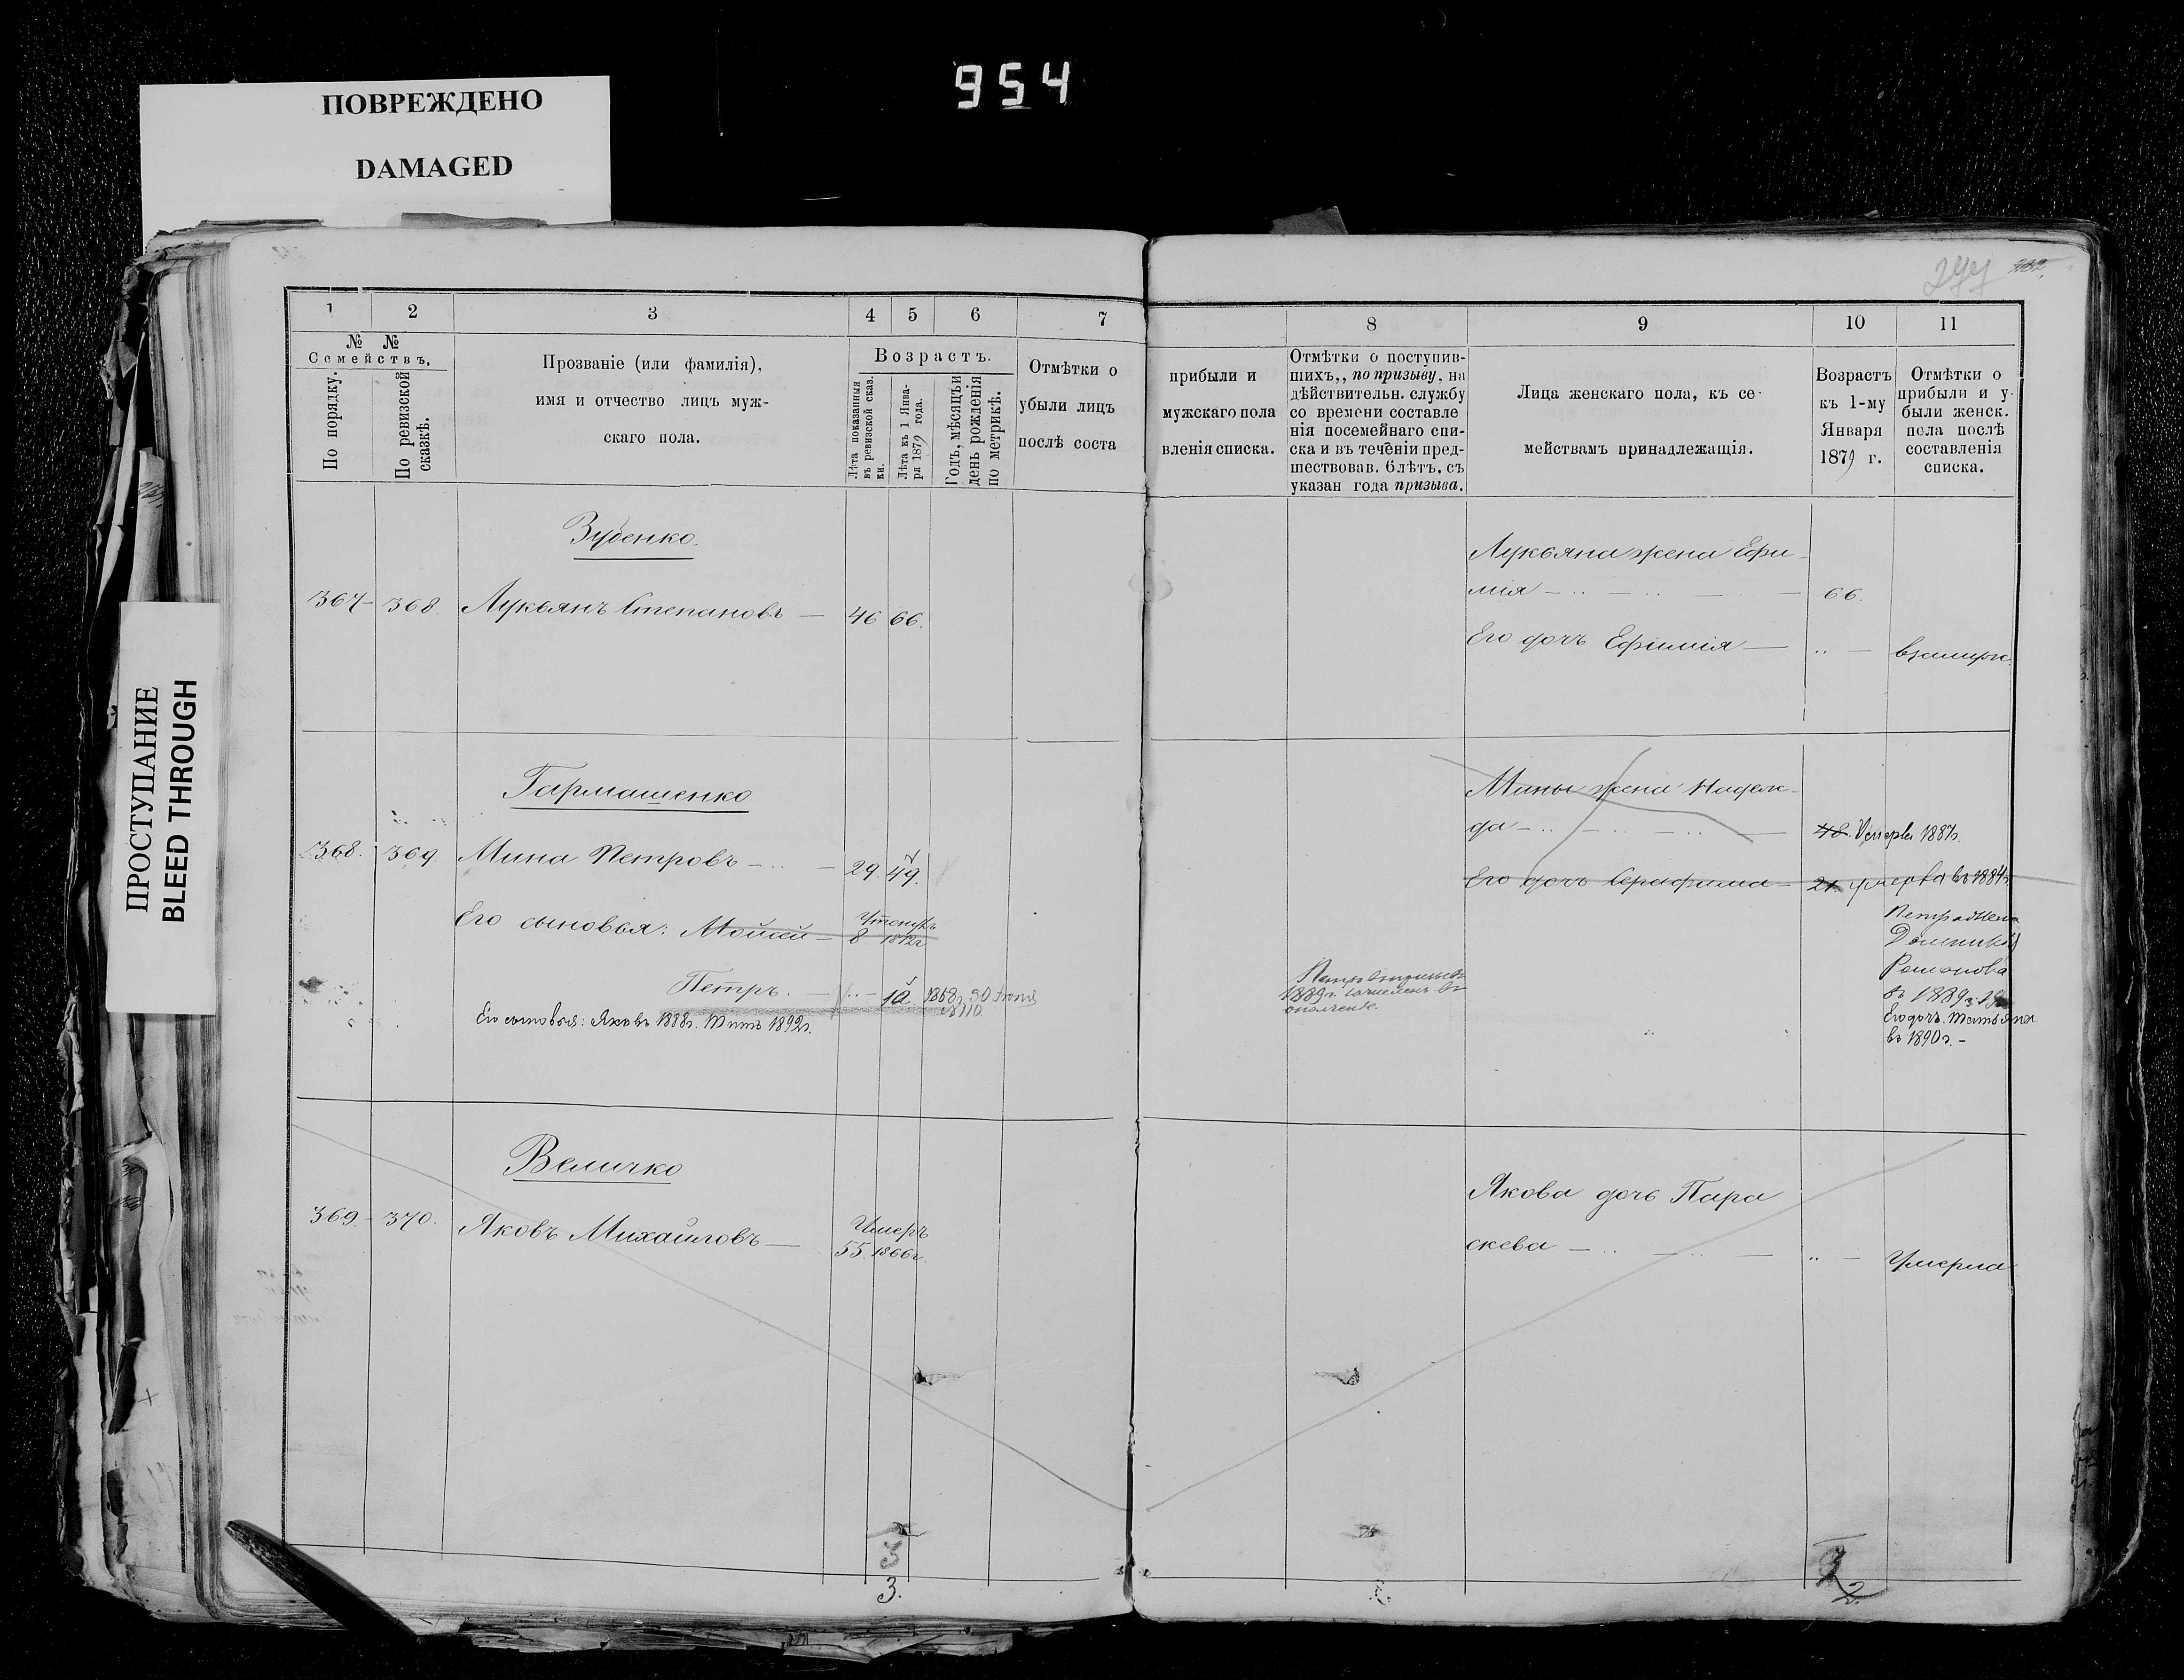 954
ПОВРЕЖДЕНО
DAMAGED
ПРОСТУПАНИЕ
BLEED THROUGH
1 2 3 4 5 6 7
№ №
Семействъ,
По порядку.
По ревизской сказкѣ.
Прозваніе (или фамилія),
имя и отчество лицъ муж-
скаго пола.
Возрастъ.
Лѣта показанныя
въ ревизской сказ.
ки.
Лѣта къ 1 Янва-
ря 1879 года.
Годъ, мѣсяцъи
день рожденія
по метрикѣ.
Отмѣтки о
убыли лицъ
послѣ соста
Зубенко.
367 - 368. Лукьянъ Степановъ — 46 66.
Гармашенко
368. 369. Мина Петровъ — 29. 49.
Его сыновья: Мойсей — 8 1872г
Петръ. — 1868г. 30
№110
Его сыновья: Яковъ 1888г. Титъ 1892г.
Величко
369. - 370. Яковъ Михайловъ — 55. Умеръ
1866г.
3
3.
277 282.
8 9 10 11
прибыли и
мужскаго пола
вленія списка.
Отмѣтки о поступив-
шихъ,, по призыву, на
дѣйствительн. службу
со времени составле
нія посемейнаго спи-
ска и въ теченіи пред-
шествовав. 6лѣтъ, съ
указан года призыва.
Лица женскаго пола, къ се-
мействамъ принадлежащія.
Возрастъ
къ 1-му
Января
1879 г.
Отмѣтки о
прибыли и у-
были женск.
пола послѣ
составленія
списка.
Лукьяна жена Ефи-
мія — 66.
Его дочь Ефимія —
Мины жена Надеж-
да — 48. Умерла 1887г.
Его дочь Серафима — 21. умерла въ 1884г.
Петра жена
Романова
въ 1889г.
Его дочь Татьяна
въ 1890г. -
1889г. зачисленъ въ
Якова дочь Пара
скева — Умерла
2